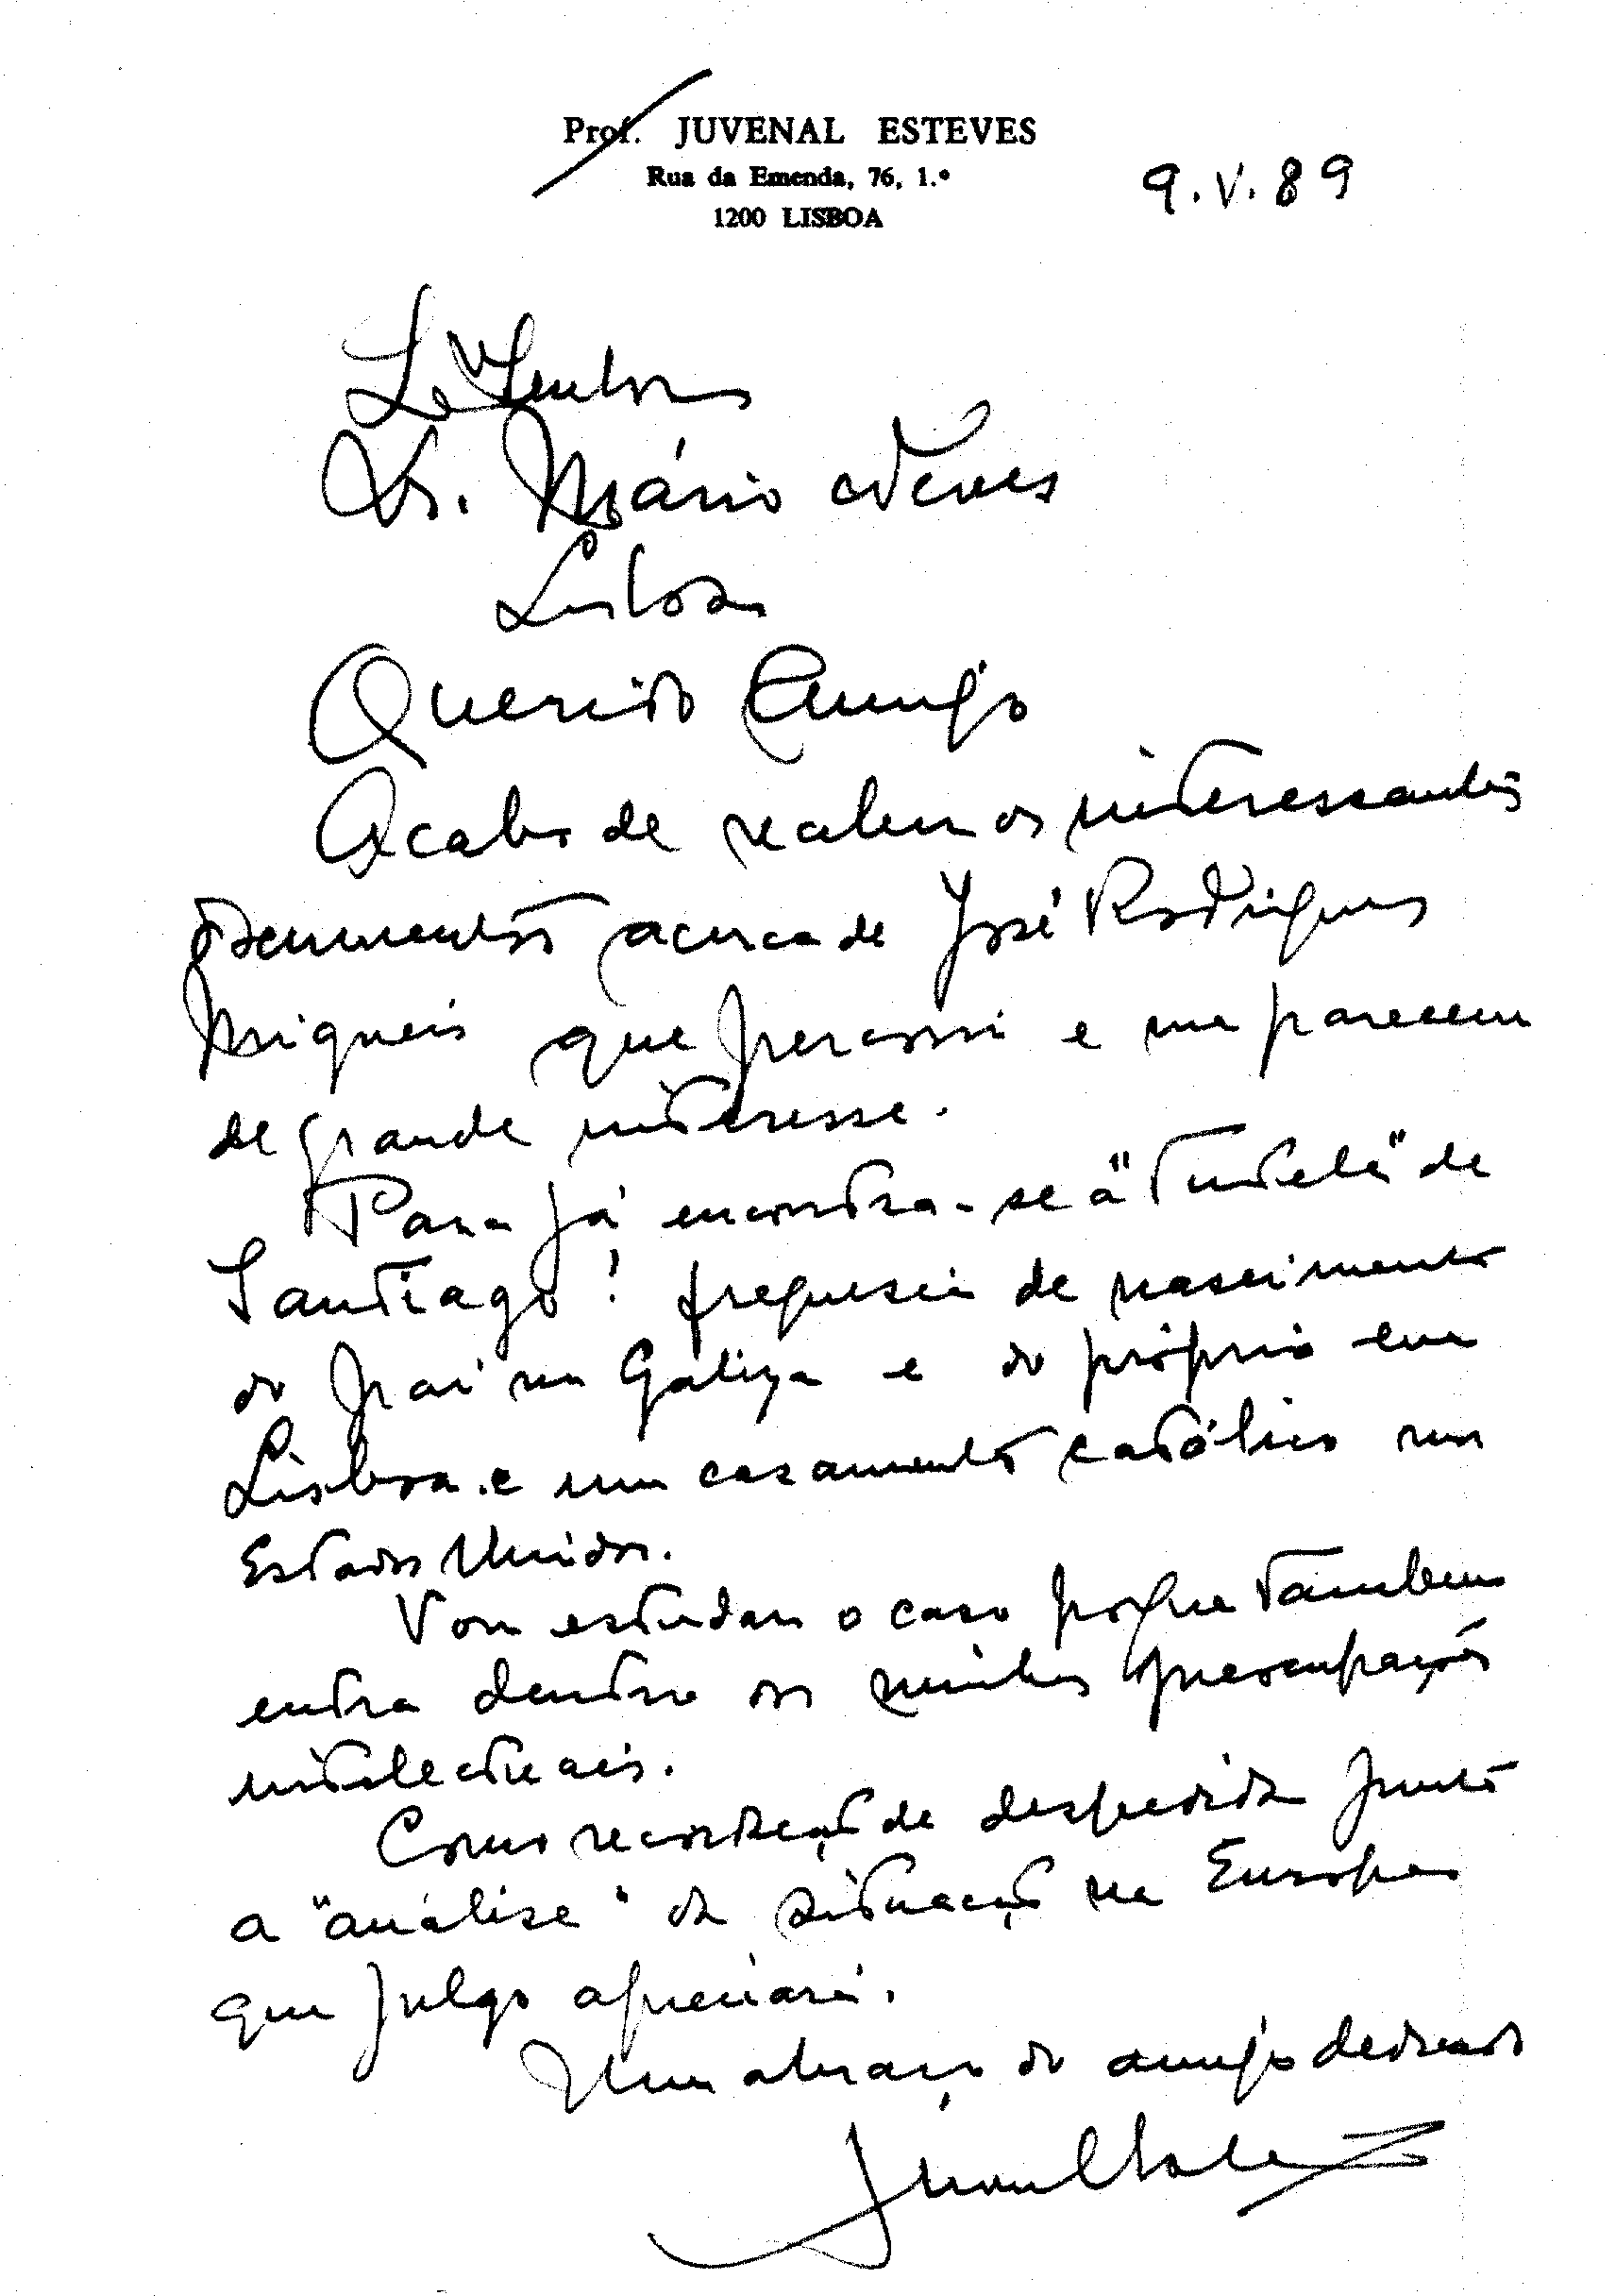 Prof. JUVENAL ESTEVES
Rua da Emenda, 76, 1.º
1200 LISBOA
9.V.89
Senhor
Dr. Mário Neves
Lisboa
Querido Amigo
Acabo de receber os interessantes
documentos acerca de José Rodrigues
Migueis que percorri e me parecem
de grande interesse.
Para já encontra-se a "tutela" de
Santiago! freguesia de nascimento
do pai na Galiza e do próprio em
Lisboa. e um casamento católico nos
Estados Unidos.
Vou estudar o caso porque tambem
entra dentro as minhas preocupações
intelectuais.
Como recordação de despedida junto
a "análise" da situação na Europa
que julgo apreciará.
Um abraço do amigo dedicado